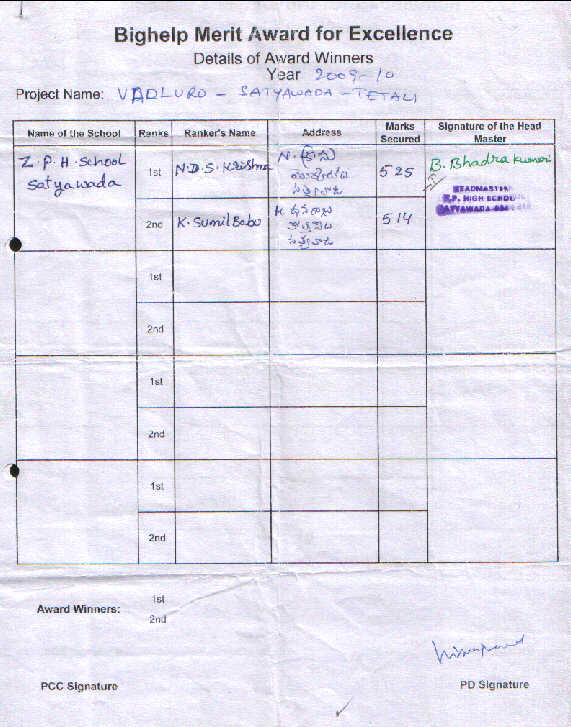 Bighelp Merit Award for Excellence
Details of Award Winners
Year 2009-10
Project Name: VADLURU - SATYAWADA - TETALI
Name of the School Ranks Ranker's Name Address Marks Secured Signature of the Head Master
Z.P.H.School Satyawada 1st N.D.S.Krishna N. 525 B. Bhadra Kumari
HEADMASTER
Z.P. HIGH SCHOOL
SATYAWADA
2nd K.Sunil Babu K 514
1st
2nd
1st
2nd
1st
2nd
Award Winners: 1st
2nd
PCC Signature PD Signature